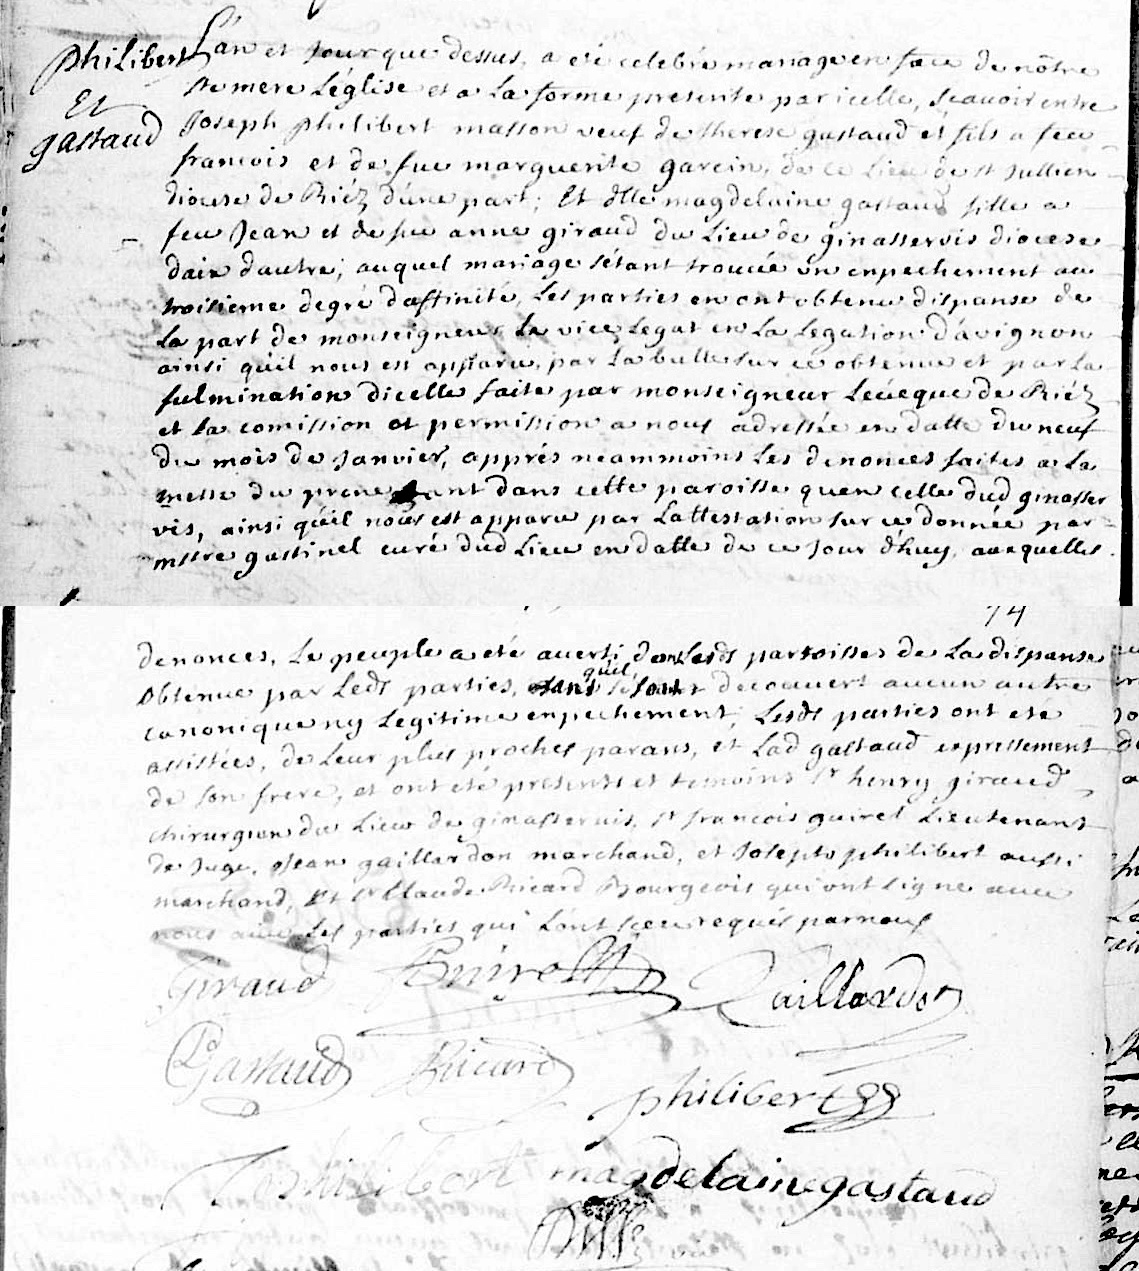 philibert
Et
gastaud
L'an et jour que dessus, a eté celebré mariage en face de nôtre
ste mere L'église et a La forme prescrite par icelle, scavoir entre
Joseph philibert masson veuf de therese gastaud et fils a feu
francois et de fue marguerite garcin, de ce Lieu de st jullien
diocese de Riéz d'une part; Et dlle magdelaine gastaud fille a
feu Jean et de fue anne giraud du Lieu de ginasservis diocese
daix d'autre; auquel mariage s'étant trouvé un enpechement au
troisieme degré daffinité, Les parties en ont obtenu dispanse de
La part de monseigneur Le vice Legat en La Legation d'avignon
ainsi qu'il nous est apparu, par La bulle sur ce obtenue et par La
fulmination dicelle faite par monseigneur Lévêque de Riéz
et La comission et permission a nous adressée en datte du neuf
du mois de Janvier, apprés neammoins Les denonces faites a La
messe du prone tant dans cette paroisse quen celle dud ginasser
vis, ainsi qu'il nous est apparu par Lattestation sur ce donnée par
mstre gastinel curé dud Lieu en datte de ce jour d'huy, auxquelles
74
denonces, Le peuple a eté averti dans Lesds parroisses de La dispanse
obtenue par Leds parties, qu'il découvert aucun autre
canonique ny Legitime enpechement; Lesds parties ont eté
assistées, de Leur plus proches parans, et Lad gastaud expressement
de son frere, et ont été presents et temoins sr henry giraud
chirurgien du Lieu de ginasservis, sr francois guirel Lieutenant
de Juge, Jean gaillardon marchand, et Joseph philibert aussi
marchand, Et sr Claude Ricard Bourgeois qui ont signe avec
nous avec Les parties qui L'ont sceu requis par nous
Giraud Gaillardon
Gastaud Ricard
philibert
philibert magdelaine gastaud